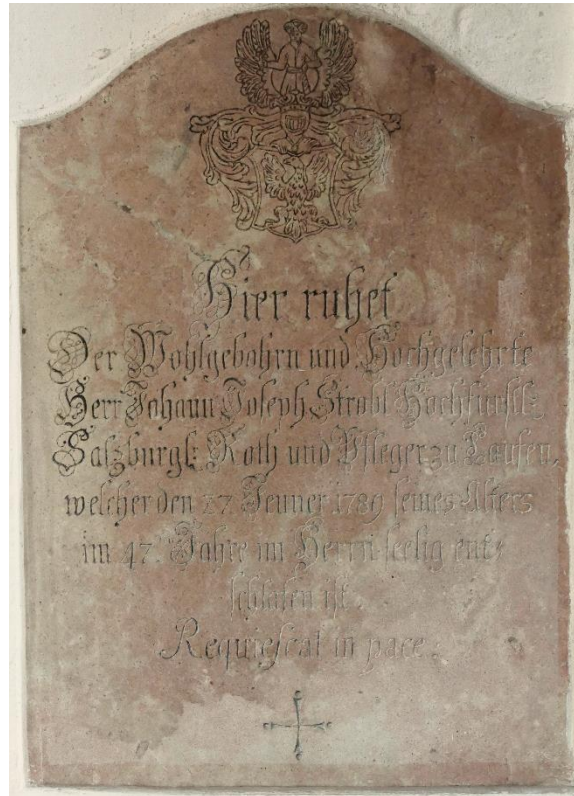 Hier ruhet
Der Wohlgebohrn und Hochgelehrte
Herr Johann Joseph Strobl Hochfürstl:
Salzburgl: Roth und Pfleger zu Laufen,
welcher den 27 Jenner 1789 seines Alters
im 47. Jahre im Herrn seelig ent=
schlafen ist.
Requiescat in pace.